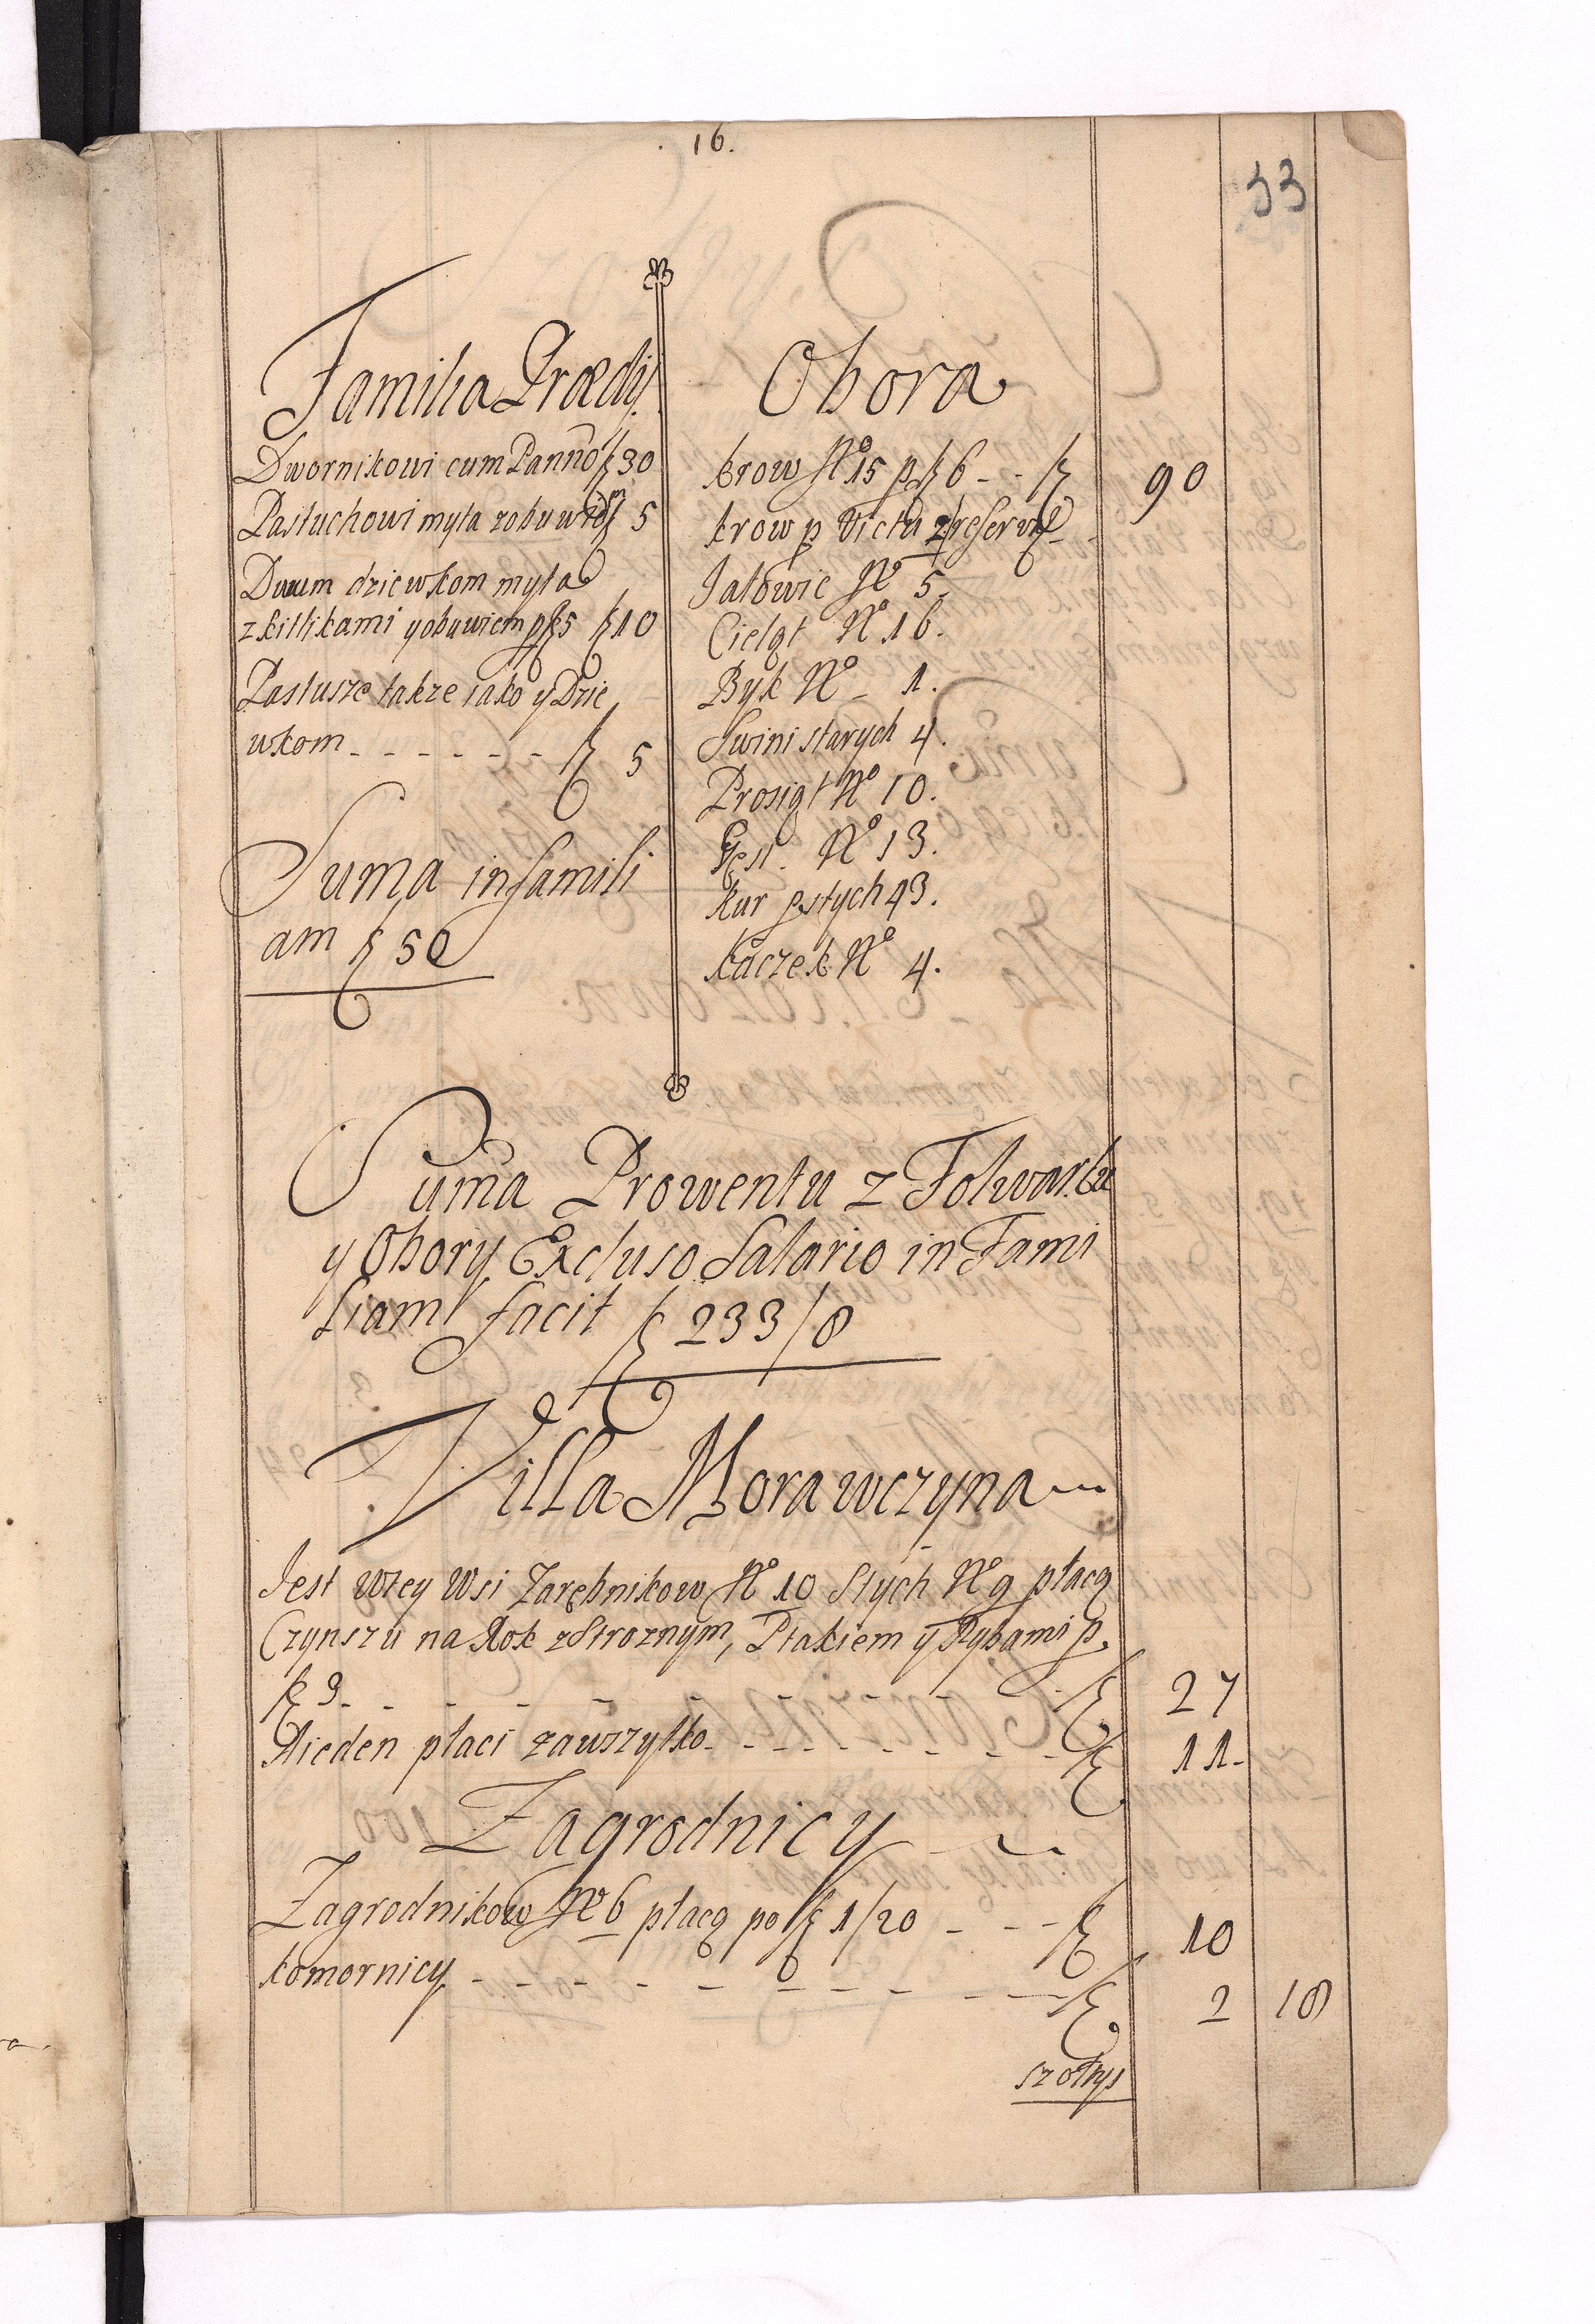 16.
33
Familia Prædij.
Dwornikowi cum Panno f 30
Pastuchowi myta zobuwię f 5
Dwum dziewkom myta
z kitlikami y obuwiem p f 5 f 10
Pastusze takze iako y Dzie
wkom - - - - - - f 5
Suma in famili
am f 50
Obora
krow No 15 p f 6 - - f 90
krow p victu 2 reserv
Jałowic No 5.
Cieląt No 16.
Byk No - 1.
Swini starych 4.
Prosiąt No 10.
Gęsi. No 13.
kur pstych 43.
kaczek No 4.
Suma Prowentu z Folwarku
y Obory Excluso Salario in Fami
liam facit f 233/8
Villa Morawczyna
Jest wtey Wsi Zarębnikow No 10 Stych No 9 płacą
Czynszu na Rok z Stroznym, Ptakiem y Rybami p.
f 3 - - - - - - - - f 27
Aieden płaci zawszytko - - - - - - - - f 11 -
Zagrodnicy
Zagrodnikow No 6 płacą po f 1/20 - - - - f 10
komornicy - - - - - - - - - - f 2 18
szołtys